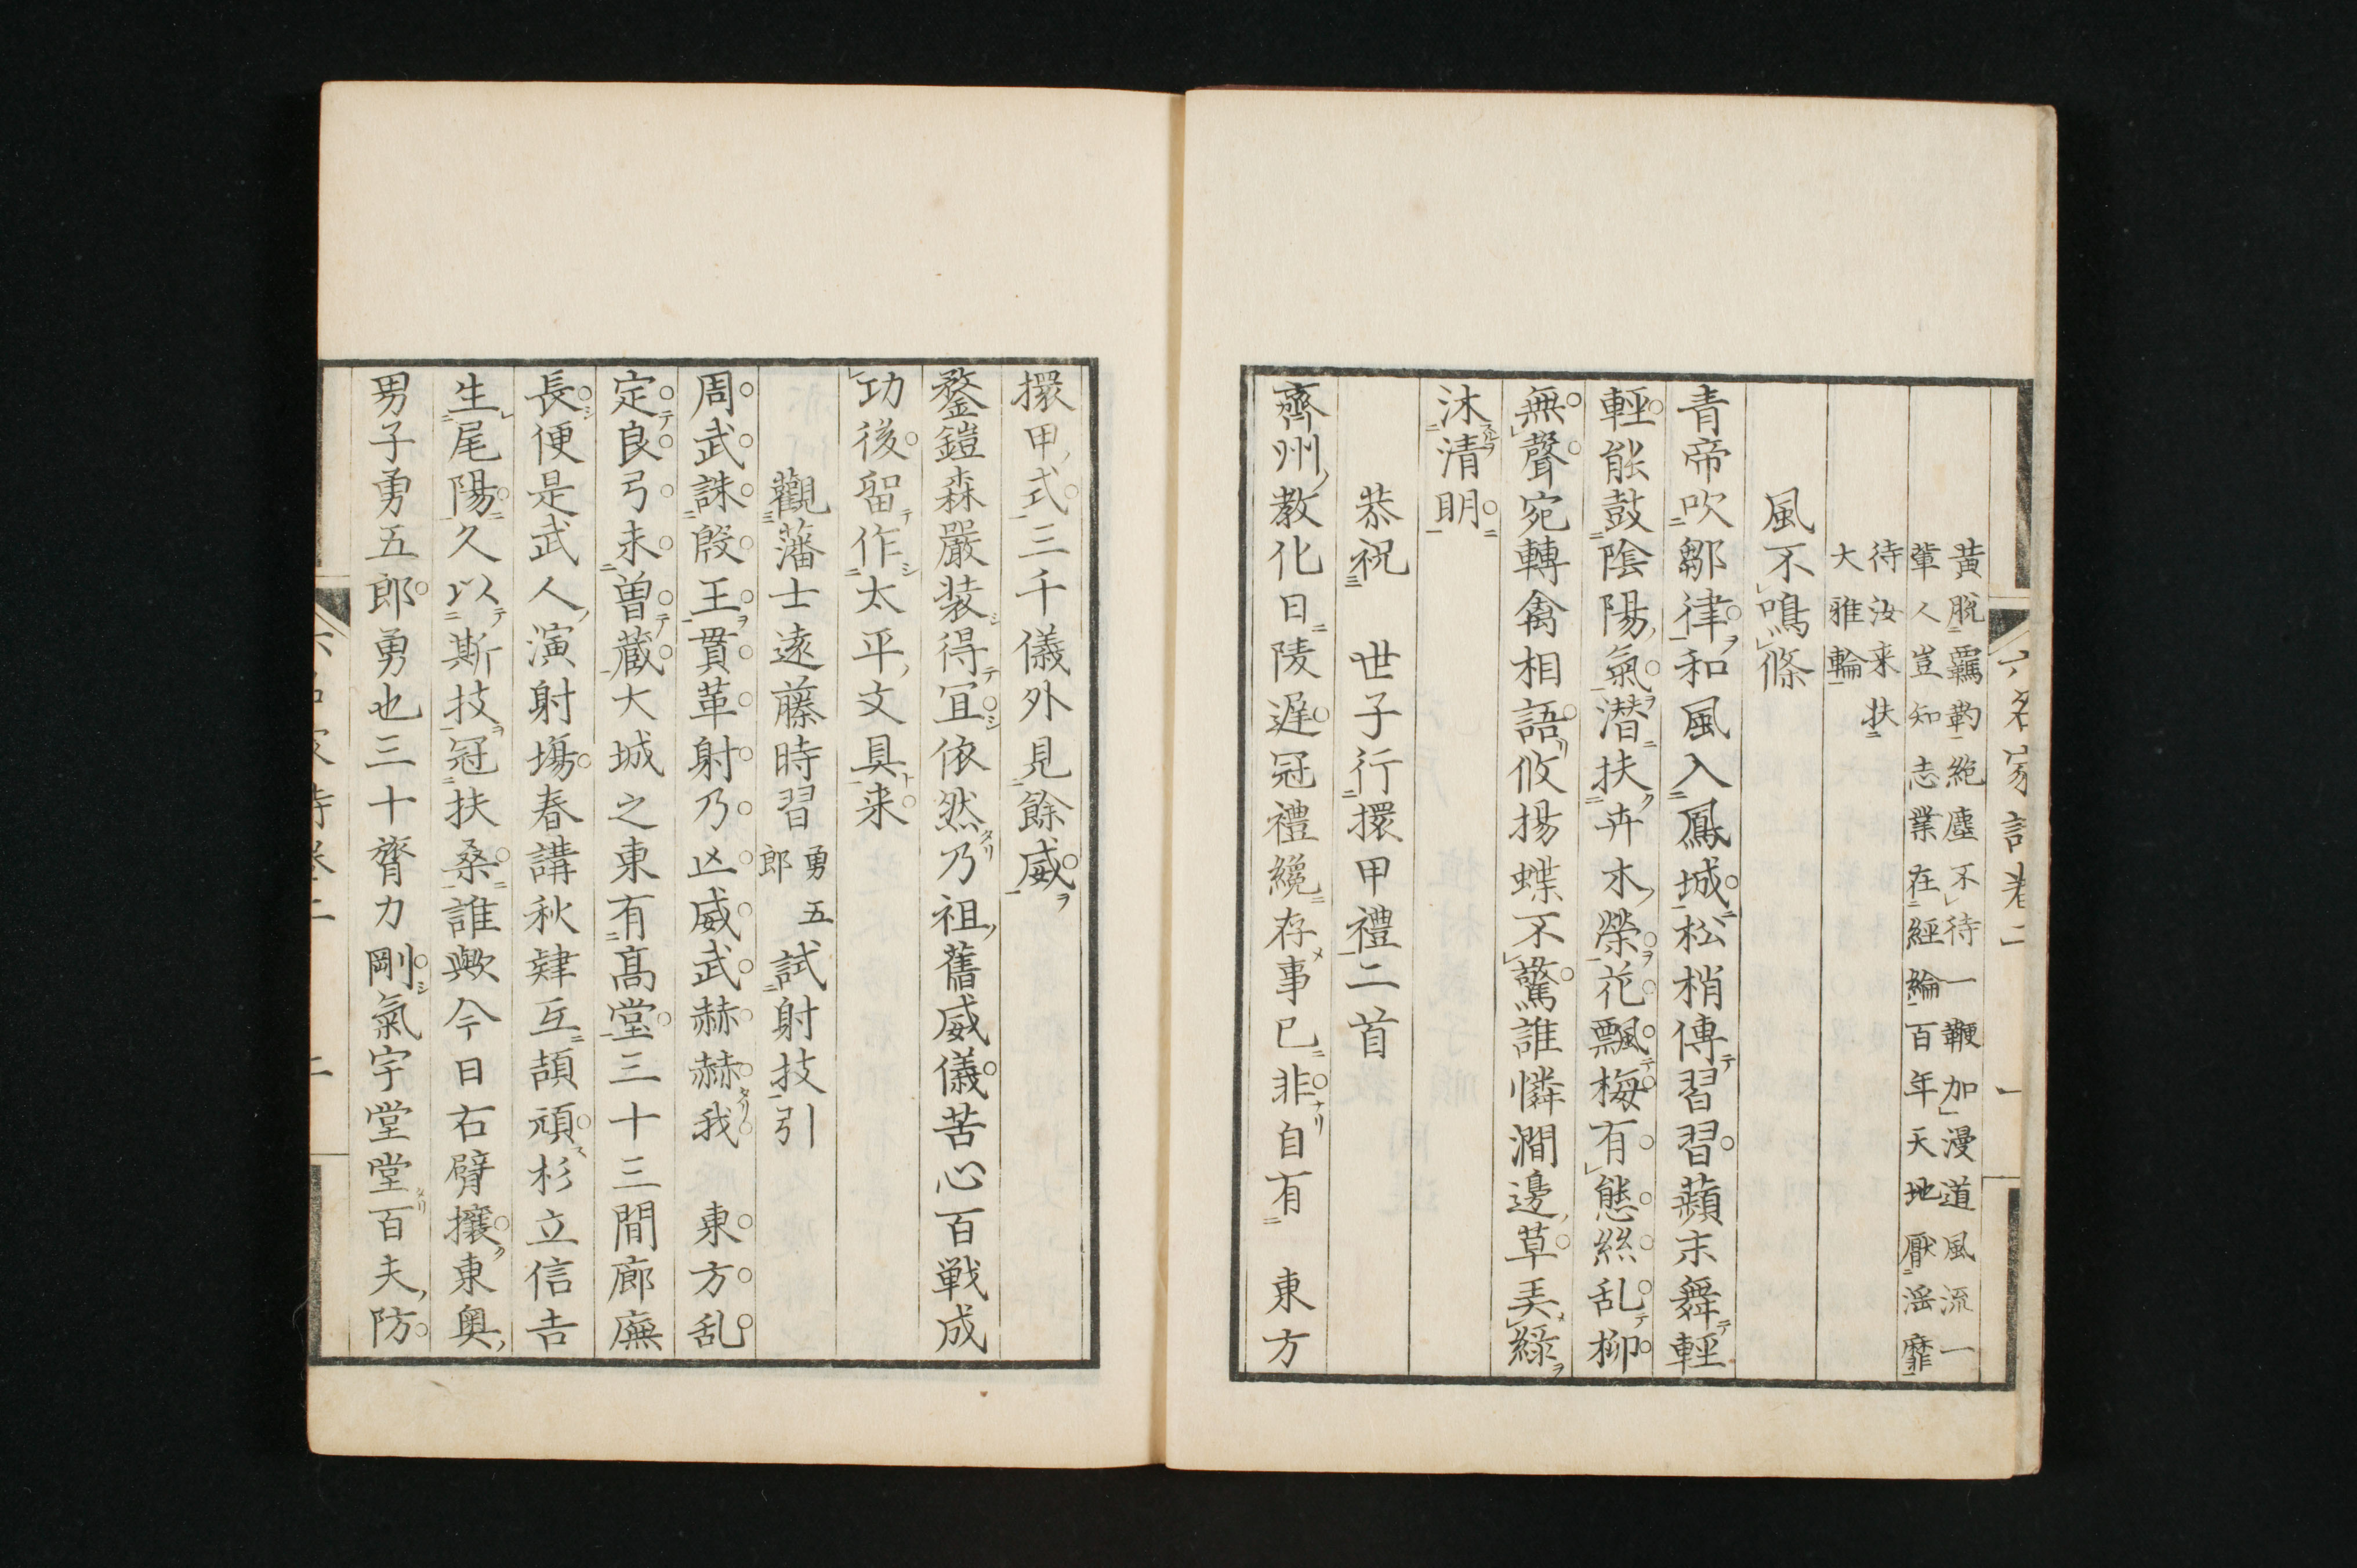 六名家詩巻二　一
黄脱羈靮絶塵不待一鞭加漫道風流一
輩人豈知志業在經綸百年天地厭滛靡
待汝来扶
大雅輪
風不鳴條
青帝吹鄒律和風入鳳城松梢傳習習蘋末舞輕
輕能鼓陰陽氣潜扶卉木榮花飄梅有態絲乱柳
無聲宛轉禽相語攸揚蝶不驚誰憐澗邊草美緑
沐清明
恭祝　世子行擐甲禮二首
齊州教化日陵遅冠禮纔存事已非自有　東方
擐甲式三千儀外見餘威
鍪鎧森嚴装得冝依然乃祖舊威儀苦心百戦成
功後留作太平文具来
觀藩士遠藤時習勇五郎試射技引
周武誅殷王貫革射乃迯威武赫赫我　東方乱
定良弓未曽蔵大城之東有髙堂三十三間廊廡
長便是武人演射塲春講秋肄互頡頏杉立信吉
生尾陽久以斯技冠扶桑誰歟今日右臂攘東奥
男子勇五郎勇也三十膂力剛氣宇堂堂百夫防
六名家詩巻二　二